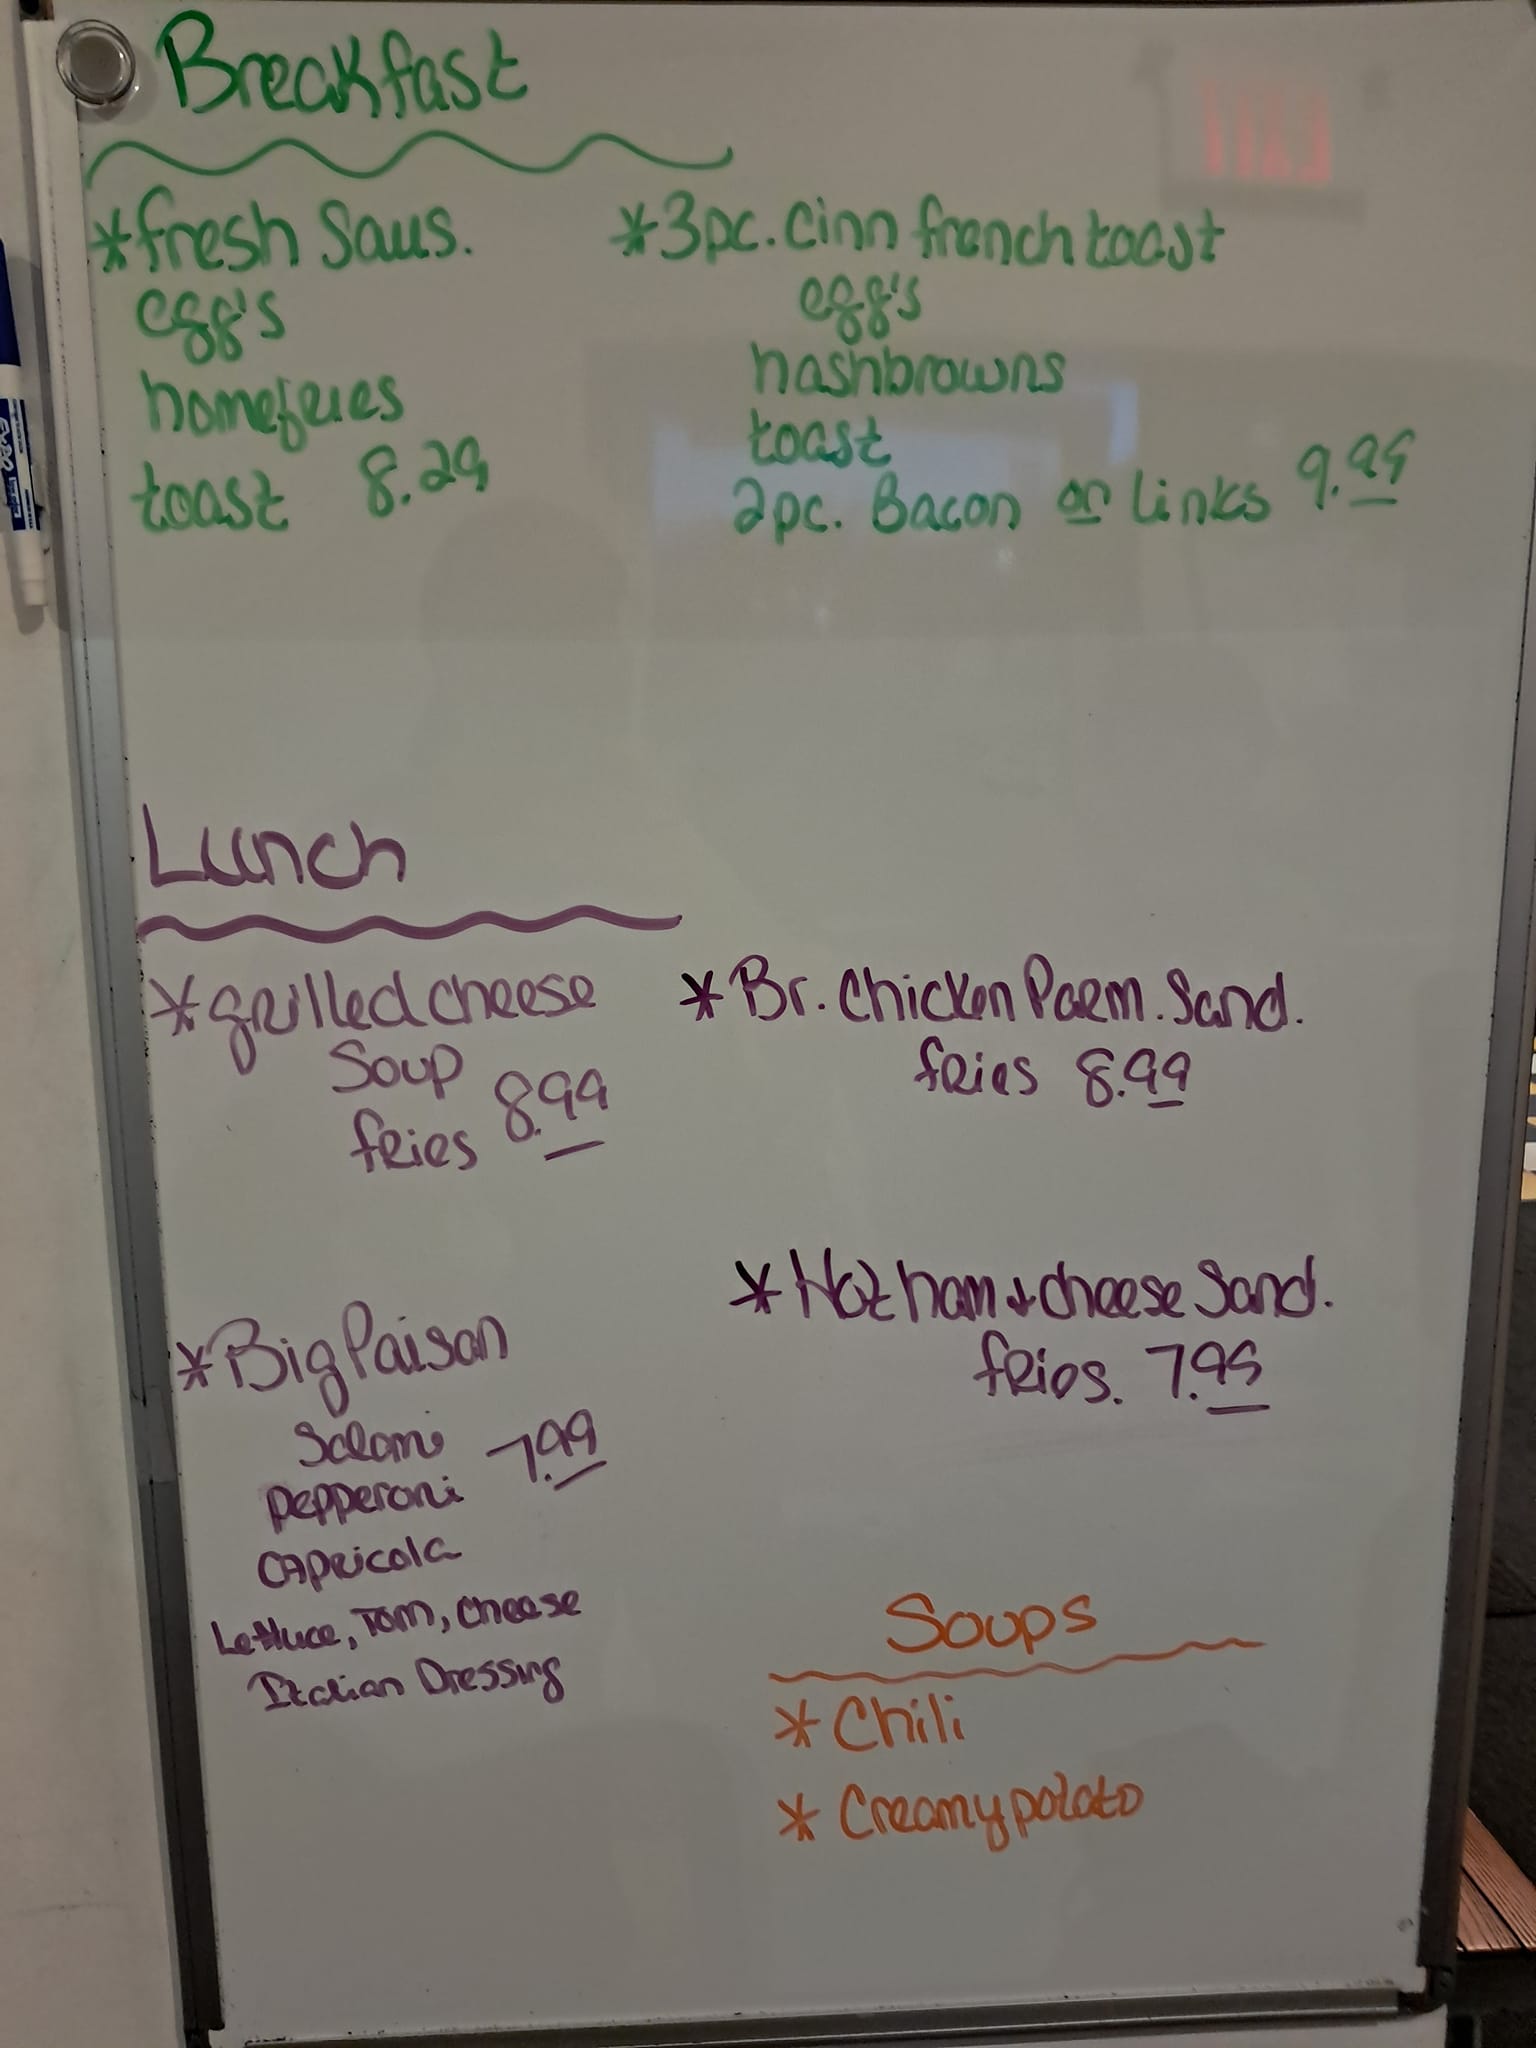 Breakfast
*fresh Saus.
egg's
homefries
toast 8.29
*3pc. Cinn french toast
egg's
hashbrowns
toast
2pc. Bacon or links 9.99
Lunch
*grilled cheese
Soup
fries 8.99
*Br. Chicken Parm. Sand.
fries 8.99
*Big Paisan
Salami 7.99
Pepperoni
Capricola
Lettuce, Tom, Cheese
Italian Dressing
*Hot ham + cheese Sand.
fries. 7.99
Soups
*Chili
*Creamy potato
EXIT
EXPO